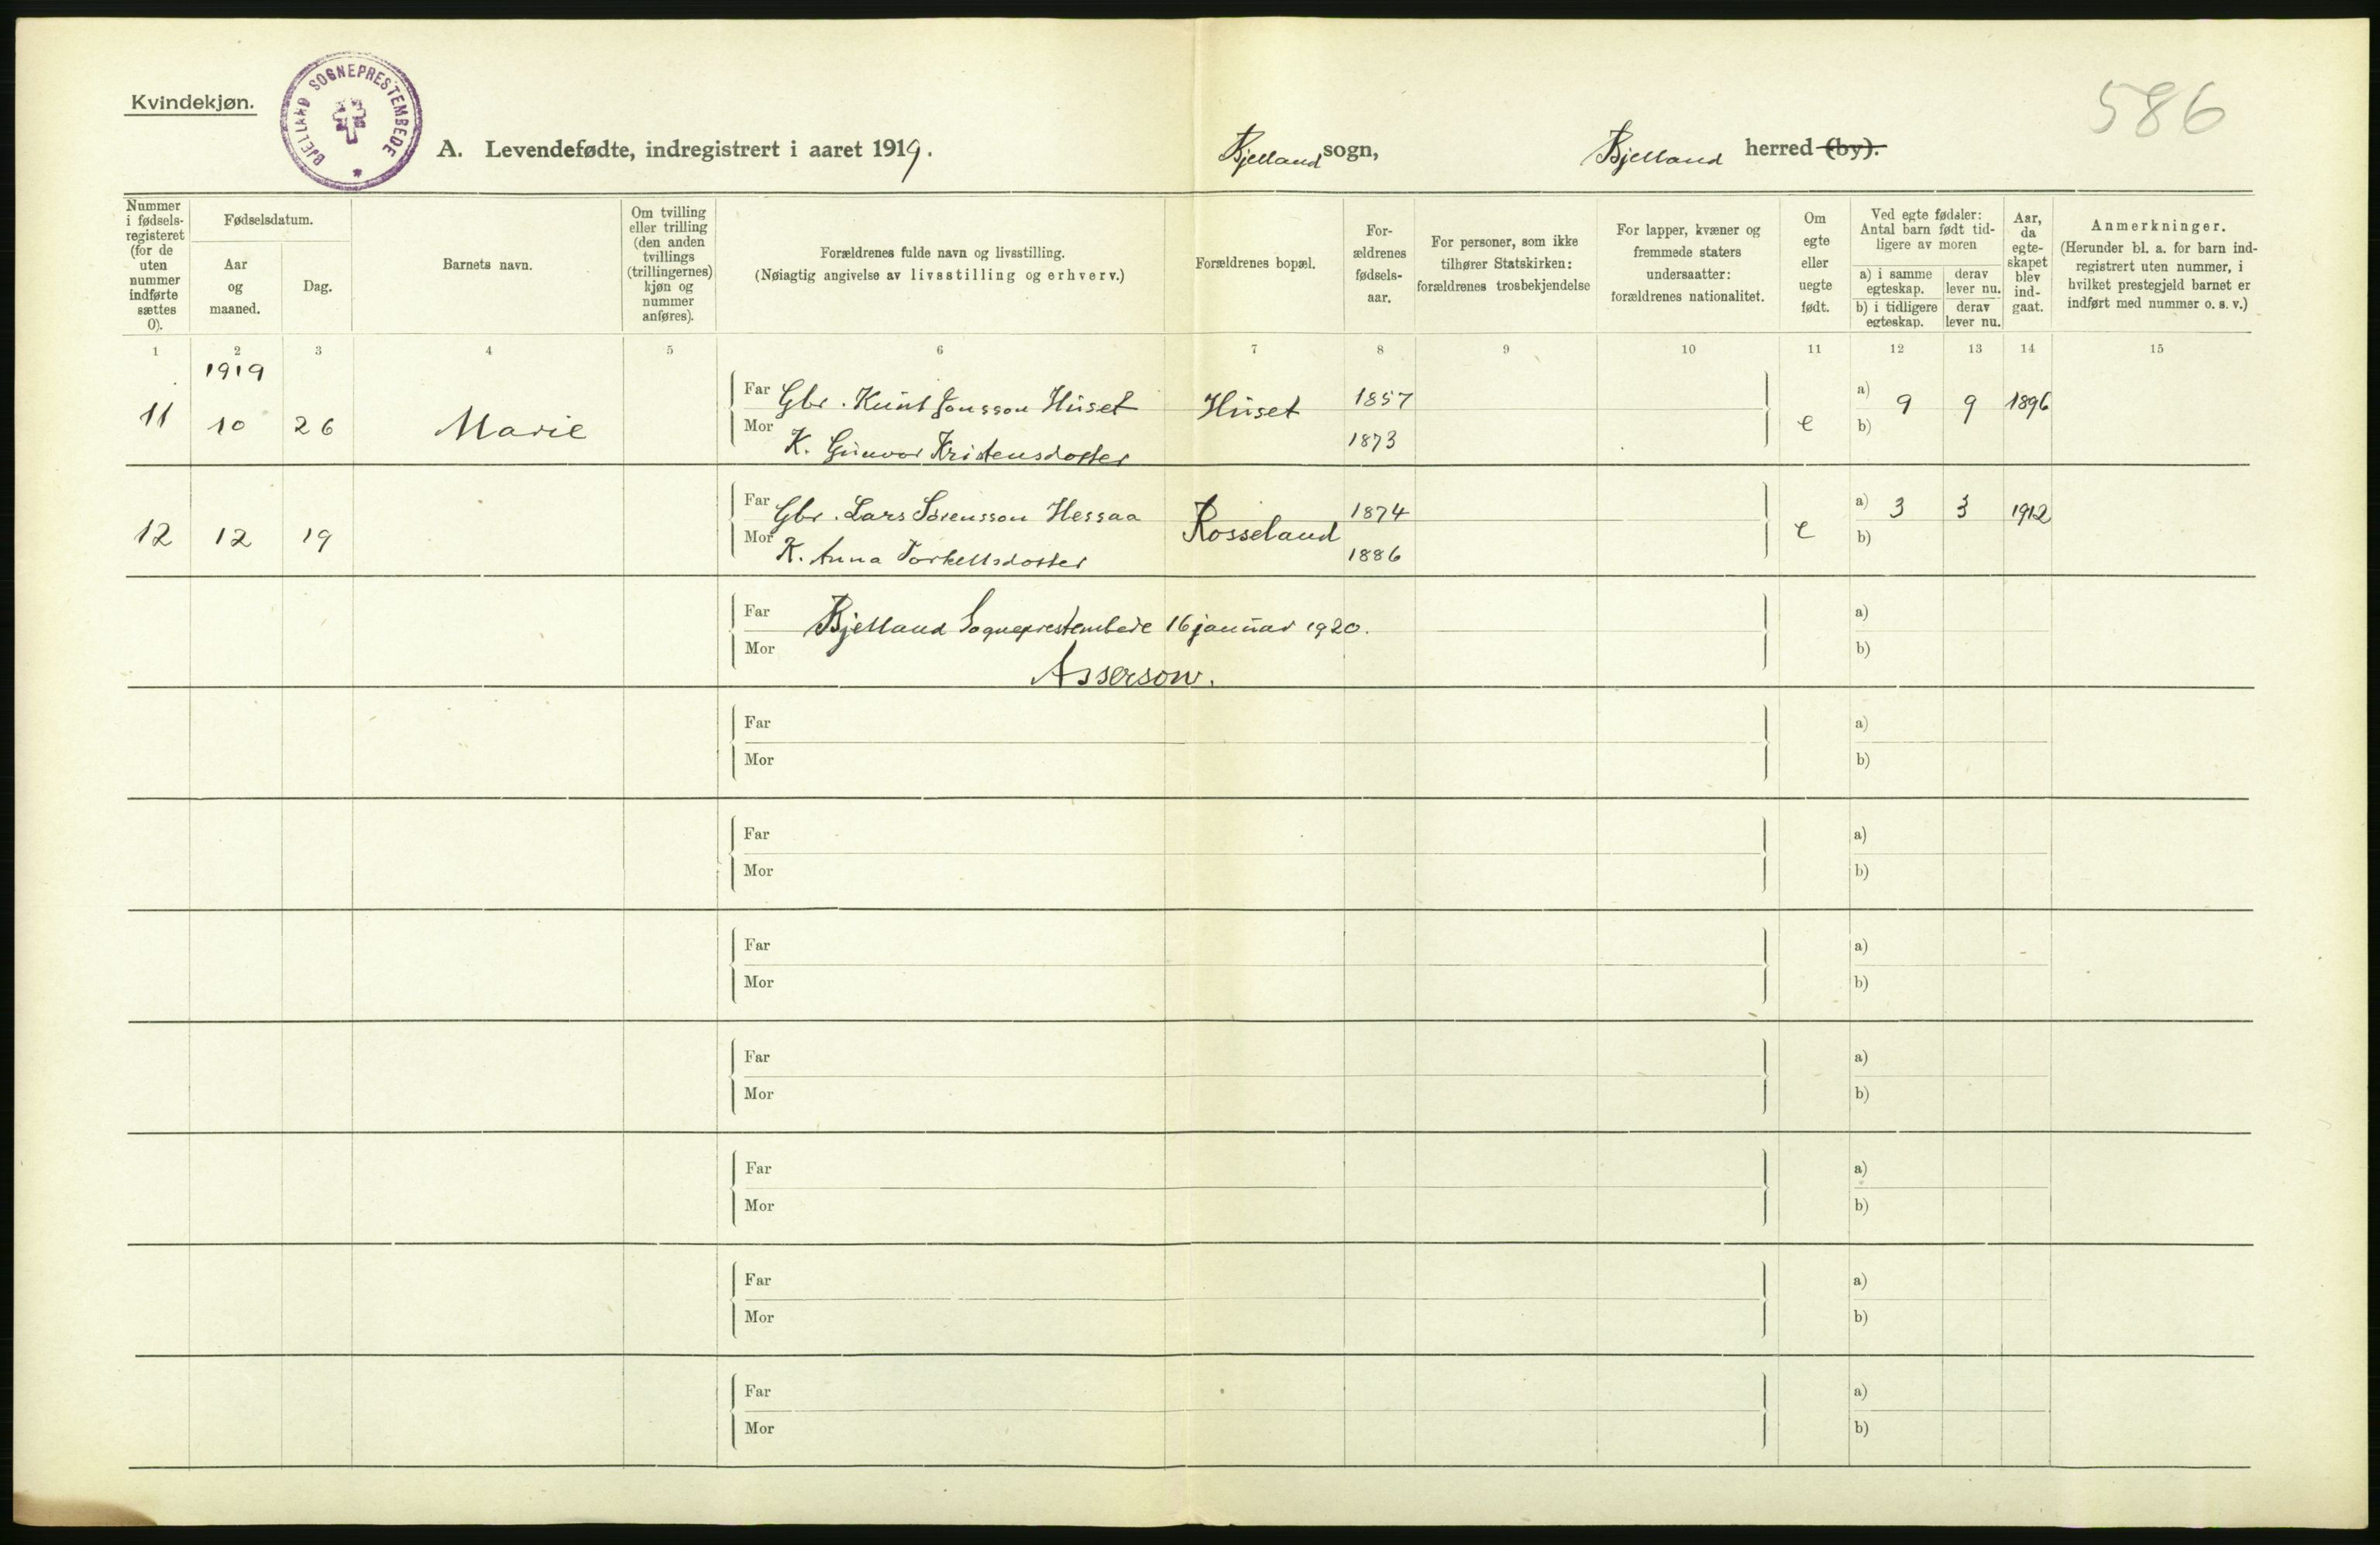 Kvindekjøn.
BJELLAND SOGNEPRESTEMBEDE
586
A. Levendefødte, indregistrert i aaret 1919. Bjelland sogn, Bjelland herred (by).
Nummer i fødsels- registeret (for de uten nummer indførte sættes 0).
Fødselsdatum.
Aar og maaned.
Dag.
Barnets navn.
Om tvilling eller trilling (den anden tvillings (trillingernes) kjøn og nummer anføres).
Forældrenes fulde navn og livsstilling.
(Nøiagtig angivelse av livsstilling og erhverv.)
Forældrenes bopæl.
For- ældrenes fødsels- aar.
For personer, som ikke tilhører Statskirken: forældrenes trosbekjendelse
For lapper, kvæner og fremmede staters undersaatter: forældrenes nationalitet.
Om egte eller uegte født.
Ved egte fødsler: Antal barn født tid- ligere av moren
a) i samme egteskap.
derav lever nu.
b) i tidligere egteskap.
derav lever nu.
Aar, da egte- skapet blev ind- gaat.
Anmerkninger.
(Herunder bl. a. for barn ind- registrert uten nummer, i hvilket prestegjeld barnet er indført med nummer o. s. v.)
1 2 3 4 5 6 7 8 9 10 11 12 13 14 15
1919
11 10 26 Marie Far Gbr. Knut Jonsson Huset Huset 1857 e a) 9 9 1896
Mor K. Gunvor Kristensdotter 1873 b)
12 12 19 Far Gbr. Lars Sørensson Hessaa Rosseland 1874 e a) 3 3 1912
Mor K. Anna Torkellsdotter 1886 b)
Far Bjelland Sogneprestembede 16 januar 1920. a)
Mor Asserson. b)
Far a)
Mor b)
Far a)
Mor b)
Far a)
Mor b)
Far a)
Mor b)
Far a)
Mor b)
Far a)
Mor b)
Far a)
Mor b)